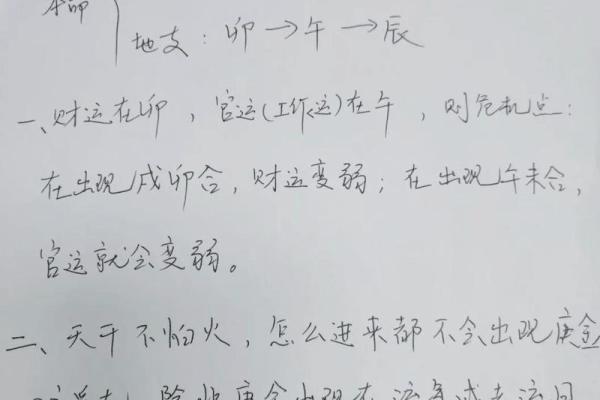 本命
地支：卯→午→辰
一、财运在卯，官运(工作运)在午，则危机点：
在出现戌卯合，财运变弱；在出现午未合，
官运就会变弱。
二、天干不怕火，怎么进来都不会出现庚金
除非庚金出现在流年或者流月